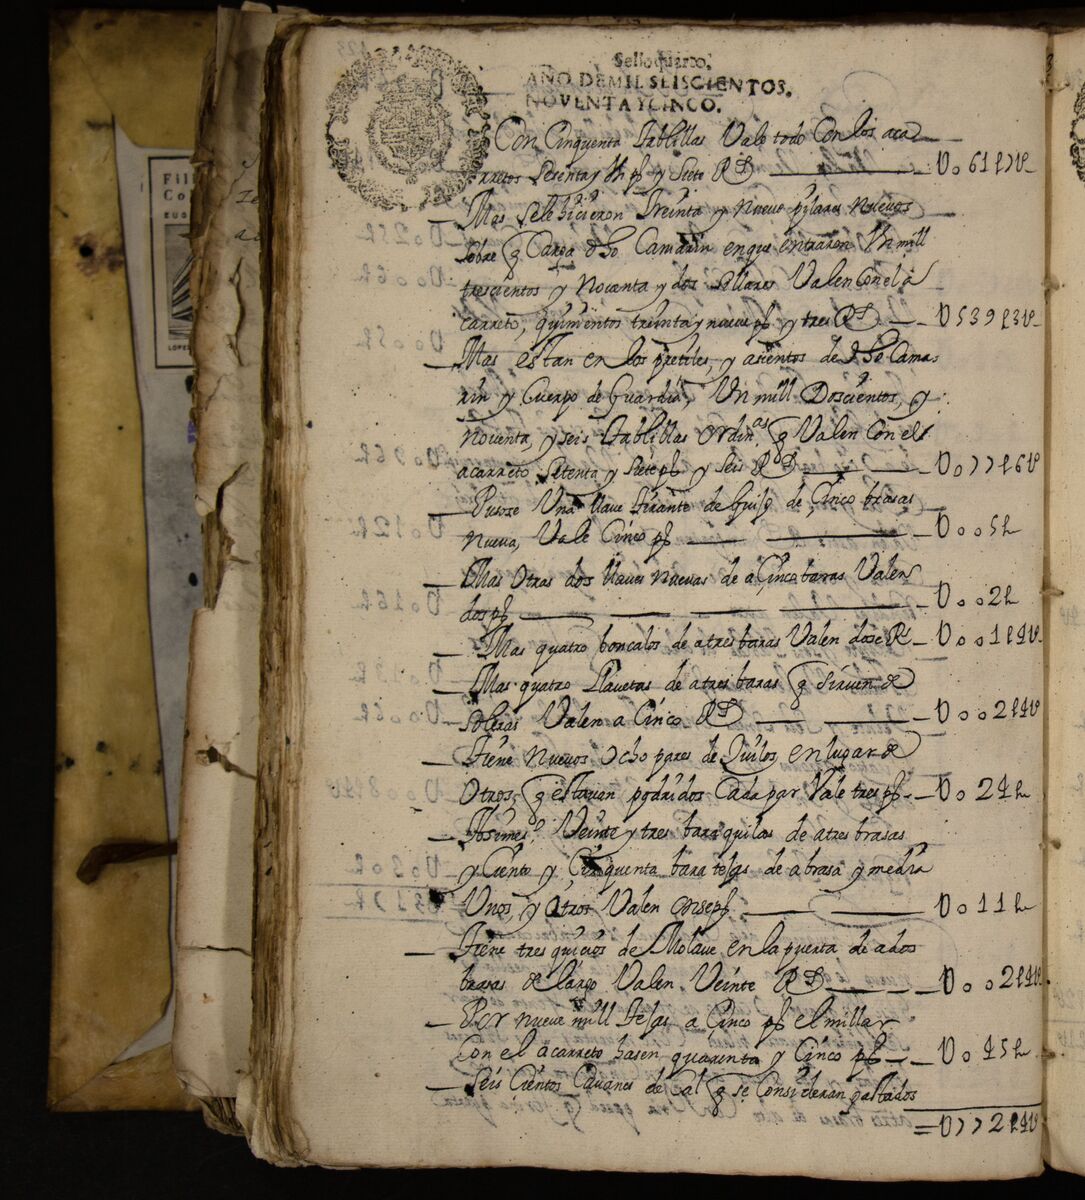 Sello quarto,
AÑO DE MIL SEISCIENTOS,
NOVENTA Y CINCO.
Con Cinquenta tablillas Vale todo Con los aca
rretos sesenta y Un ps y Siete Rs U061p7U
Mas sele hicieron treinta y nueve pilares nuevos
sobre q Carga dho Camarin en que entraron Un mill
trescientos y Noventa y dos sillares Valen Con el a
carreto, quinientos treinta y nueve ps y tres Rs U539p3U
Mas estan en los pretiles, y asientos de dho Cama-
rin y Cuerpo de Guardia, Un mill Doscientos, y
noventa, y seis tablillas ordinas q Valen Con el
acarreto Setenta y Siete ps y Seis Rs U077p6U
Pusose Una llave tirante de Guijo de Cinco brasas
nueva, Vale Cinco ps U005p
Mas Otras dos llaves nuevas de a Cinco baras Valen
dos ps U002p
Mas quatro boncalos de a tres baras Valen dose Rs U001p4U
Mas quatro llavetas de a tres baras q Sirven de
soleras Valen a Cinco Rs U002p4U
tiene nuevos Ocho pares de Quilos, en lugar de
Otros, q estavan podridos Cada par Vale tres ps U024p
Assimesmo Veinte y tres baraquilas de a tres brasas
y Ciento y Cinquenta baratejas de a brasa y media
Unos, y otros Valen onse ps U011p
tiene tres quicios de Molave en la puerta de a dos
brasas de largo Valen Veinte Rs U002p4U
Por nueve mill tejas a Cinco ps el millar
Con el acarreto hasen quarenta y Cinco ps U045p
Seis Cientos Cavanes de Cal q se Consideran gastados
U772p4U